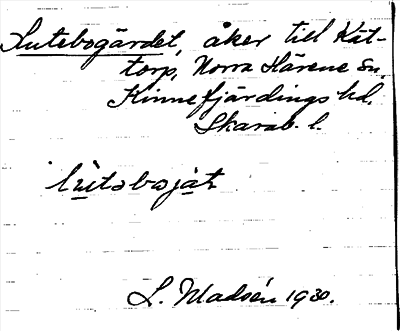 Lutebogärdet, åker till Kät-
torp, Norra Härene sn,
Kinnefjärdings hd,
Skarab. l.
lùtəbojàt
L. Madsén 1930.